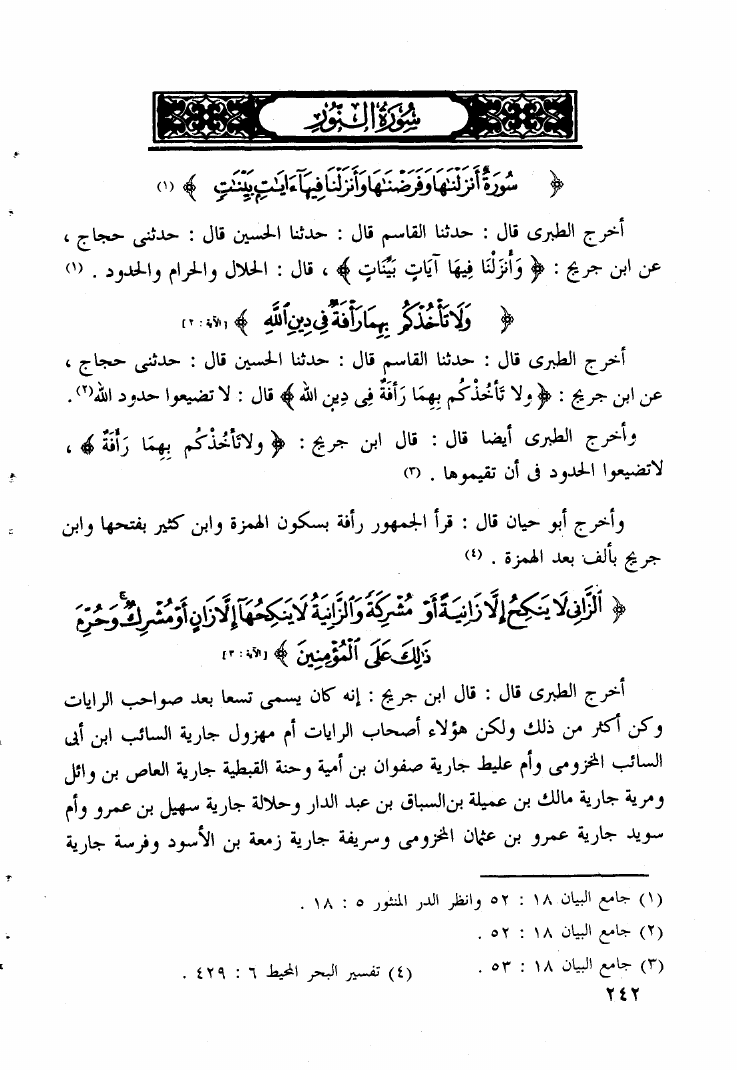 سورة النور
﴿ سُورَةٌ أَنزَلْنَٰهَا وَفَرَضْنَٰهَا وَأَنزَلْنَا فِيهَآ ءَايَٰتٍۭ بَيِّنَٰتٍ ﴾ (١)
أخرج الطبرى قال : حدثنا القاسم قال : حدثنا الحسين قال : حدثنى حجاج ،
عن ابن جريج : ﴿ وَأَنزَلْنَا فِيهَا آيَاتٍ بَيِّنَاتٍ ﴾ ، قال : الحلال والحرام والحدود . (١)
﴿ وَلَا تَأْخُذْكُم بِهِمَا رَأْفَةٌ فِى دِينِ ٱللَّهِ ﴾ [الآية : ٢]
أخرج الطبرى قال : حدثنا القاسم قال : حدثنا الحسين قال : حدثنى حجاج ،
عن ابن جريج : ﴿ ولا تَأْخُذْكُم بِهِمَا رَأفَةٌ فِى دِينِ الله ﴾ قال : لا تضيعوا حدود الله(٢).
وأخرج الطبرى أيضا قال : قال ابن جريج : ﴿ ولاتَأْخُذْكُم بِهِمَا رَأْفَةٌ ﴾ ،
لاتضيعوا الحدود فى أن تقيموها . (٣)
وأخرج أبو حيان قال : قرأ الجمهور رأفة بسكون الهمزة وابن كثير بفتحها وابن
جريج بألف بعد الهمزة . (٤)
﴿ ٱلزَّانِى لَا يَنكِحُ إِلَّا زَانِيَةً أَوْ مُشْرِكَةً وَٱلزَّانِيَةُ لَا يَنكِحُهَآ إِلَّا زَانٍ أَوْ مُشْرِكٌ ۚ وَحُرِّمَ
ذَٰلِكَ عَلَى ٱلْمُؤْمِنِينَ ﴾ [الآية : ٣]
أخرج الطبرى قال : قال ابن جريج : إنه كان يسمى تسعا بعد صواحب الرايات
وكن أكثر من ذلك ولكن هؤلاء أصحاب الرايات أم مهزول جارية السائب ابن أبى
السائب المخزومى وأم عليط جارية صفوان بن أمية وحنة القبطية جارية العاص بن وائل
ومرية جارية مالك بن عميلة بن السباق بن عبد الدار وحلالة جارية سهيل بن عمرو وأم
سويد جارية عمرو بن عثمان المخزومى وسريفة جارية زمعة بن الأسود وفرسة جارية
(١) جامع البيان ١٨ : ٥٢ وانظر الدر المنثور ٥ : ١٨ .
(٢) جامع البيان ١٨ : ٥٢ .
(٣) جامع البيان ١٨ : ٥٣ . (٤) تفسير البحر المحيط ٦ : ٤٢٩ .
٢٤٢